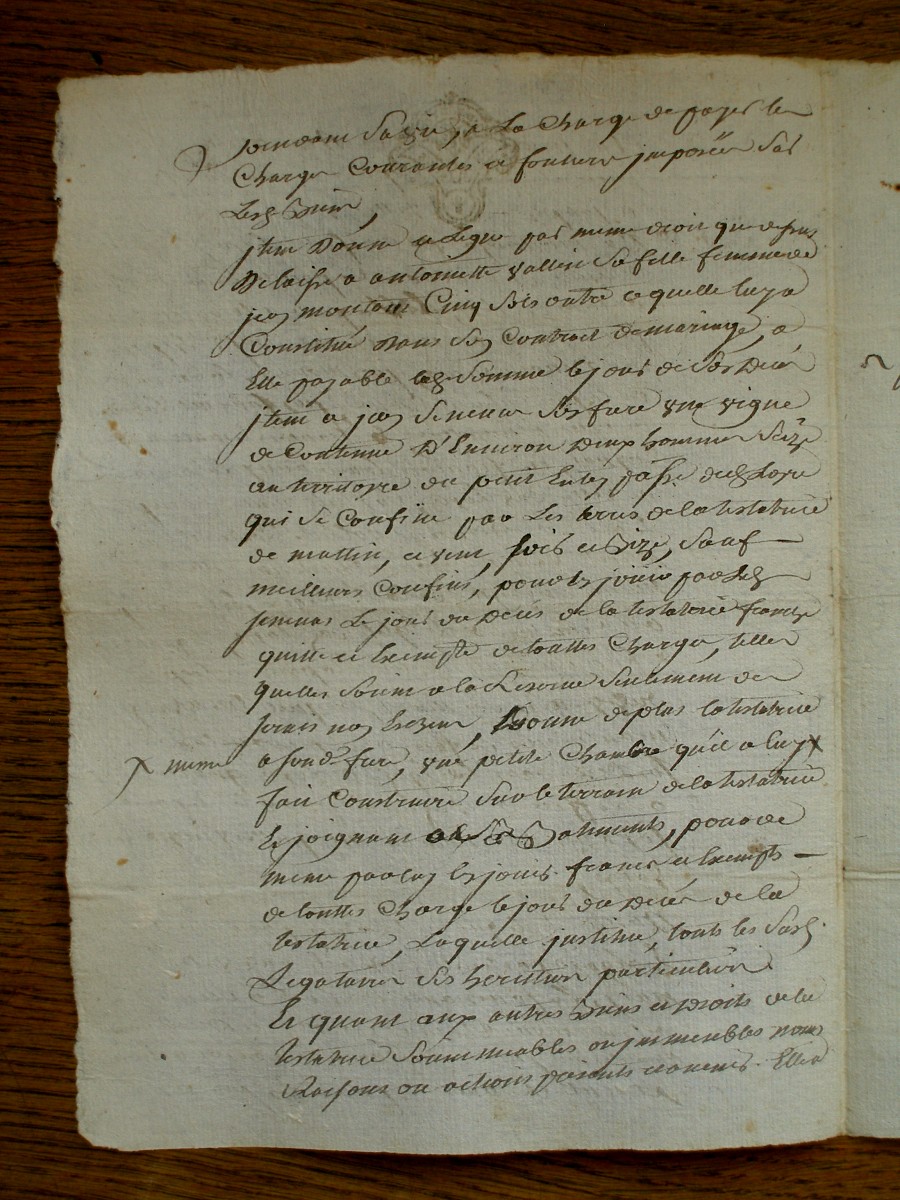 sa vie, a La Charge de payer les
Charges Courantes et foncieres jmposées sur
Lesd. Biens,
jtem Donne et Legue par meme droit que dessus
Delaisse a antoinette vallin sa fille femme de
jean montant Cinq sols outre ce quelle luy a
Constitué Dans son Contract de mariage, a
Elle payable lad. somme le jour de son Deces
jtem a jean son frere une vigne
de Contenue D'Environ Deux hommes size
au territoire du petit
qui se Confine par Les terres de la testatrice
de mattin, et vent, soir et Bize, sauf
meilleurs Confins, pour en jouir par led.
Le jour du Deces de la testatrice franche
quitte et Exempte de touttes Charges, telles
quelles soient a la Reserve seulement des
servis non Excedés, Donne de plus la testatrice
X meme a sond. frere, une petite Chambre qu'il a luy X
fait Construire sur le terrain de la testatrice
Et joignant a ses Batiments, pour de
meme par luy En jouir francs et Exempts
de touttes Charge le jour du Deces de la
testatrice, Laquelle justitue, touts les susd.
Legataires ses heritiers particuliers
Et quant aux autres Biens et Droits de la
testatrice soint meubles ou jmmeubles noms
Raisons ou actions presents et avenir. Elle a